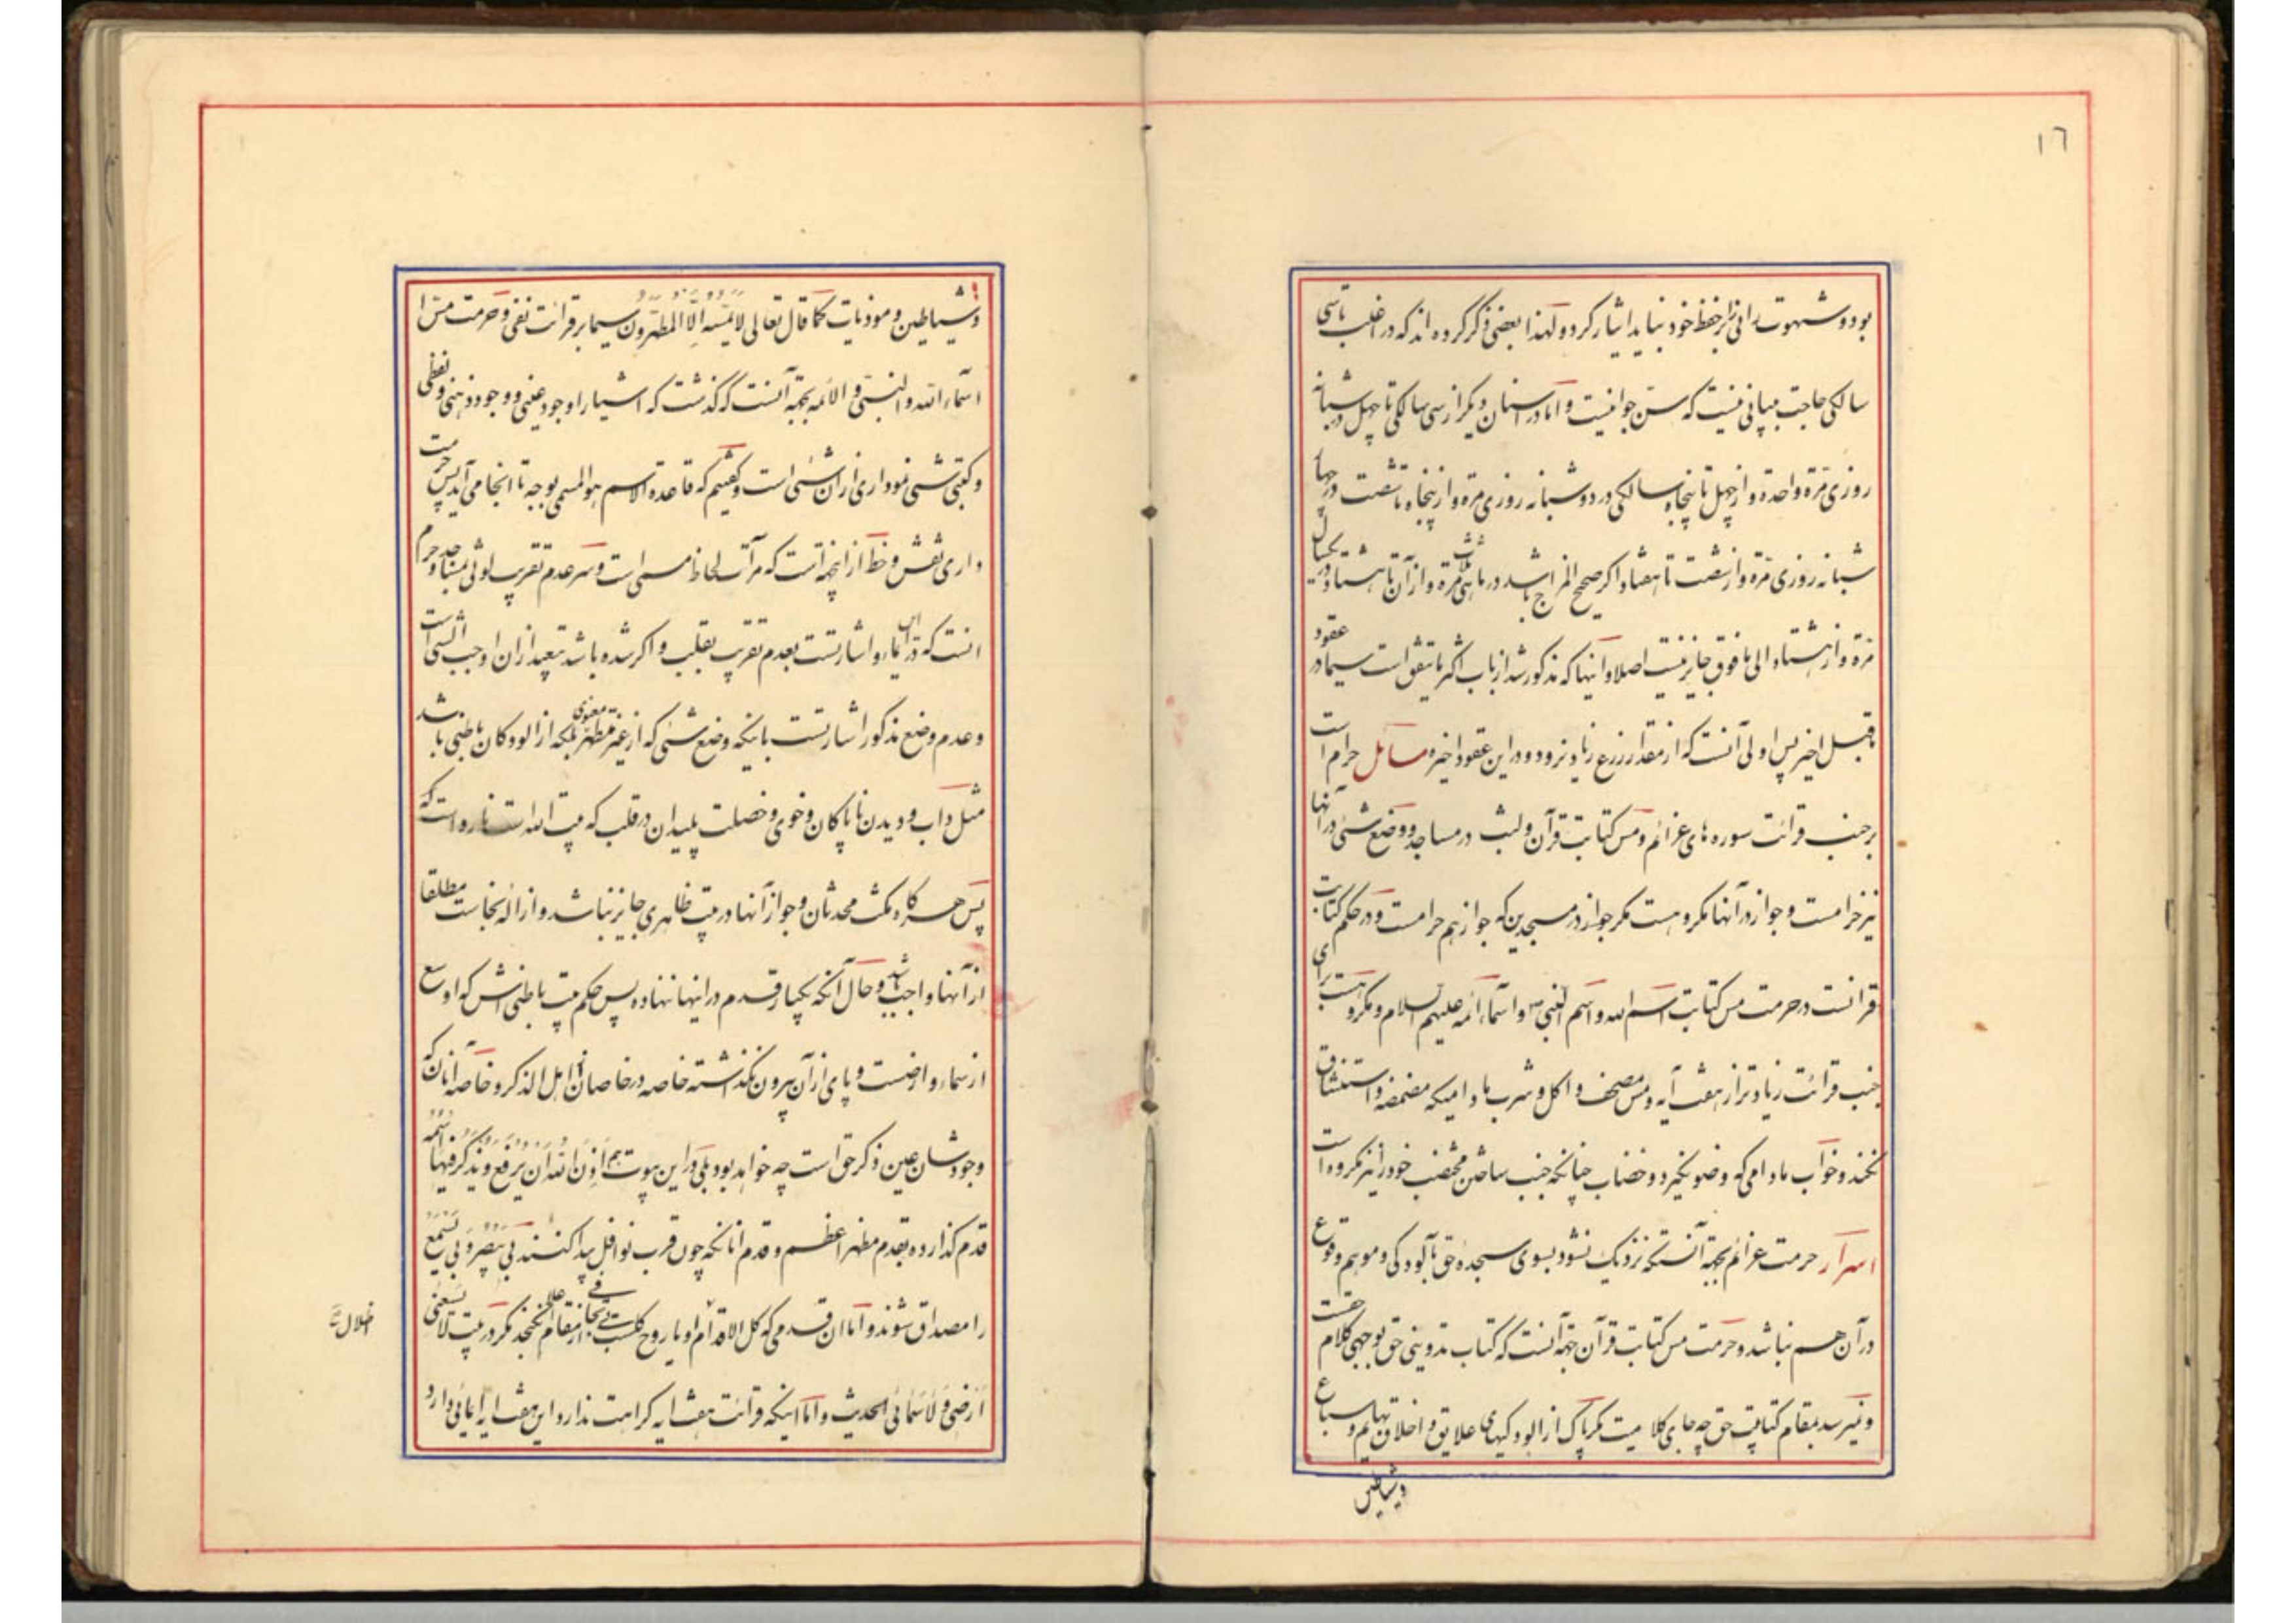 ١٦
بود و شهوت رانی بر حفظ خود نباید ایثار کرد و لهذا بعضی ذکر کرده اند که در اغلب تا سی
سالگی حاجت بیانی نیست که سن جوانیست و اما در اسنان دیگر از سی سالگی تا چهل در شبانه
روزی مرة واحدة و از چهل تا پنجاه سالگی در دو شبانه روزی مرة و از پنجاه تا شصت در چهار
شبانه روزی مرة و از شصت تا هفتاد اگر صحیح المزاج باشد در ماهی مرة و از آن تا هشتاد در یکسال
مرة و از هشتاد الی ما فوق جایز نیست اصلا و اینها که مذکور شد از باب اکثر ما یتفق است سیما در عقود
ما قبل اخیر پس اولی آنست که از مقدار زرع زیاد نرود و در این عقود اخیره مسائل حرام است
بر جنب قرائت سوره های عزائم و مس کتابت قرآن و لبث در مساجد و وضع شئی در آنها
نیز حرامست و جواز در آنها مکروهست مگر جواز در مسجدین که جواز هم حرامست و در حکم کتابت
قرانست در حرمت مس کتابت اسم الله و اسم النبی ص و اسماء ائمه علیهم السلام و مکروهست برای
جنب قرائت زیادتر از هفت آیه و مس مصحف و اکل و شرب مادامیکه مضمضه و استنشاق
نکند و خواب مادامی که وضو نگیرد و خضاب چنانکه جنب ساختن مختضب خود را نیز مکروه است
اسرار حرمت عزائم بجهة آنستکه نزدیک نشود بسوی سجدهٔ حق با آلودگی و موهم وقوع
در آن هم نباشد و حرمت مس کتابت قرآن بجهة آنست که کتاب تدوینی حق بوجهی کلام حقست
و نمیرسد بمقام کتاب حق چه جای کلامیت مگر پاک از آلودگیهای علایق و اخلاق بهایم و سباع
و شیاطین
و شیاطین و موذیات کما قال تعالی لا یمسه الا المطهرون سیما بر قرائت نفی و حرمت مس
اسماء الله و النبی و الائمه بجهة آنست که گذشت که اشیا را وجود عینی و وجود ذهنی و لفظی
و کتبی شئی نموداری از آن شئی است و گفتیم که قاعده الاسم هو المسمی بوجه تا اینجا می آید پس حرمت
داری نقش و خط از اینجهة است که مرآت لحاظ مسمی است و سر عدم تقرب اولی بمساجد و حرم
انست که در این ایماء و اشارتست بعدم تقرب بقلب و اگر شده باشد تبعید از آن اوجب الشئی است
و عدم وضع مذکور اشارتست بانکه وضع شئی که از غیر مطهر معنوی بلکه از الودکان باطنی باشد
مثل دآب و دیدن ناپاکان و خوی و خصلت پلیدان در قلب که بیت الله است نارواست که
پس هرگاه مکث محدثان و جواز آنها در بیت ظاهری جایز نباشد و ازاله نجاست مطلقا
از آنها واجب باشد و حال آنکه یکبار قدم در اینها ننهاده پس حکم بیت باطنی اش که اوسع
از سماء و ارضست و پای از آن بیرون نگذاشته خاصه در خاصان اهل الذکر و خاصه آنان که
وجودشان عین ذکر حق است چه خواهد بود بلی در این بیوت هم اذن الله ان یرفع و یذکر فیها اسمه
قدم گذارده بقدم مظهر اعظم و قدم انانکه چون قرب نوافل پیدا کنند بی یبصر و بی یسمع
را مصداق شوند و اما ان قدمی که کل الاقدام او یا روح کلست از مقام نگنجد مگر در بیت لا یسعنی
ارضی و لا سمائی الحدیث و اما اینکه قرائت هفت ایه کراهت ندارد این هفت ایه ایمائی دارد